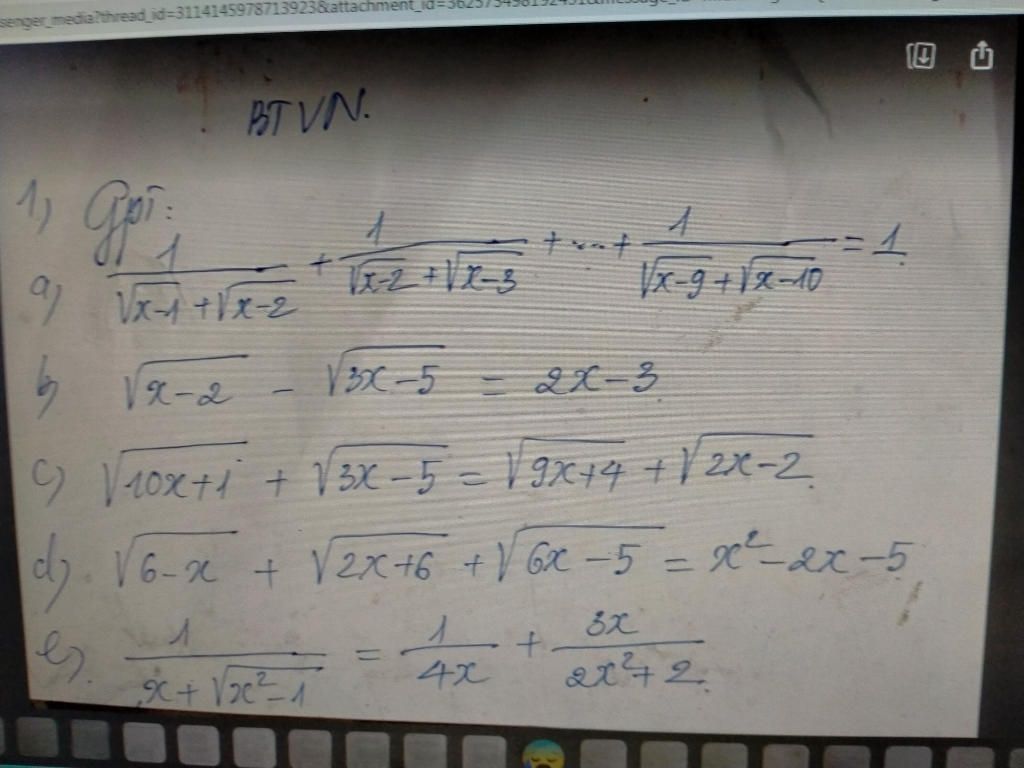 senger_media?thread_id=3114145978713923&attachment_id=
BTVN.
1) Gpt:
a) 1/(√(x-1) + √(x-2)) + 1/(√(x-2) + √(x-3)) + ... + 1/(√(x-9) + √(x-10)) = 1.
b) √(x-2) - √(3x-5) = 2x-3
c) √(10x+1) + √(3x-5) = √(9x+4) + √(2x-2).
d) √(6-x) + √(2x+6) + √(6x-5) = x² - 2x - 5
e) 1/(x + √(x²-1)) = 1/(4x) + 3x/(2x²+2).